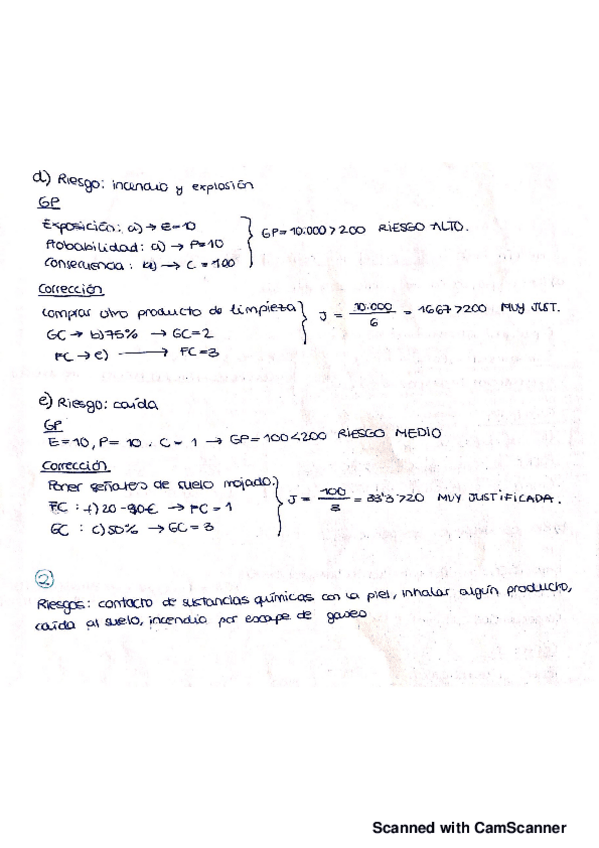 d) Riesgo: incendio y explosión
GP
Exposición: a) → E=10
Probabilidad: a) → P=10
Consecuencia: b) → C=100
GP= 10.000 > 200 RIESGO ALTO.
Corrección
comprar otro producto de limpieza
GC → b) 75% → GC=2
FC → e) → FC=3
J = 10.000 / 6 = 1667 > 200 MUY JUST.
e) Riesgo: caída
GP
E=10, P= 10, C= 1 → GP= 100 < 200 RIESGO MEDIO
Corrección
Poner señales de suelo mojado.
FC : f) 20-90€ → FC= 1
GC : c) 50% → GC= 3
J = 100 / 3 = 33'3 > 20 MUY JUSTIFICADA.
2
Riesgos: contacto de sustancias químicas con la piel, inhalar algún producto,
caída al suelo, incendio por escape de gases
Scanned with CamScanner